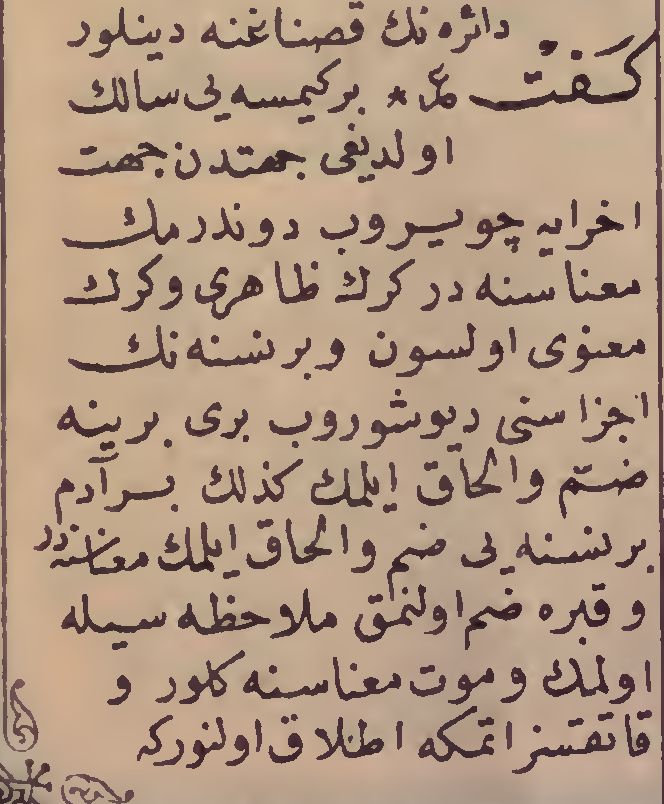 دائره نك قصناغنه دینلور
كفت ع * بر كیمسه یی سالك
اولدیغی جهتدن جهت
اخرایه چویروب دوندرمك
معناسنه در كرك ظاهری وكرك
معنوی اولسون وبر نسنه نك
اجزاسنی دیوشوروب بری برینه
ضم والحاق ایلمك كذلك بر آدم
بر نسنه یی ضم والحاق ایلمك معناسنه در
و قبره ضم اولنمق ملاحظه سیله
اولمك و موت معناسنه كلور و
قاتقسز اتمكه اطلاق اولنور كه